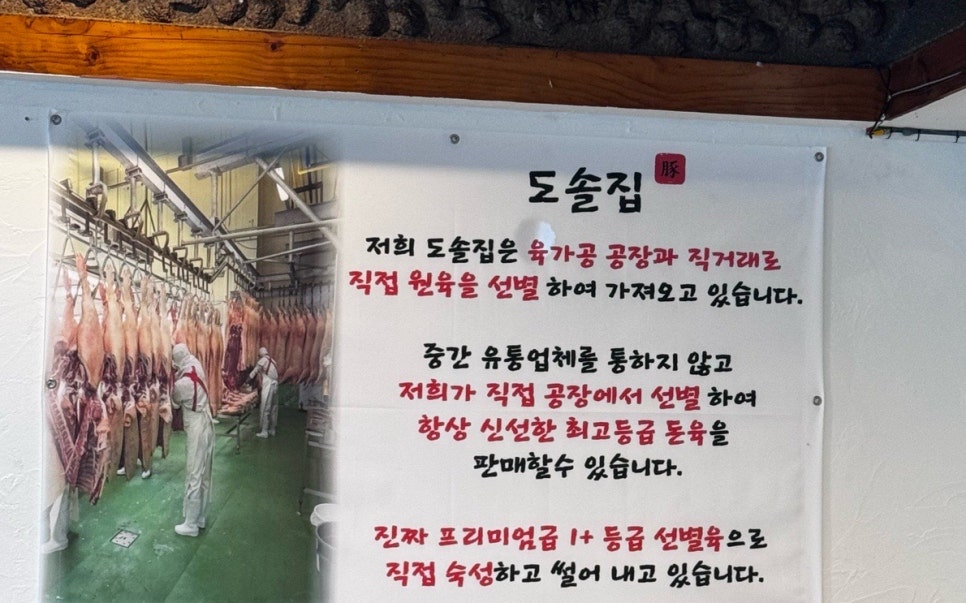 도솔집 豚
저희 도솔집은 육가공 공장과 직거래로
직접 원육을 선별 하여 가져오고 있습니다.
중간 유통업체를 통하지 않고
저희가 직접 공장에서 선별 하여
항상 신선한 최고등급 돈육을
판매할수 있습니다.
진짜 프리미엄급 1+ 등급 선별육으로
직접 숙성하고 썰어 내고 있습니다.